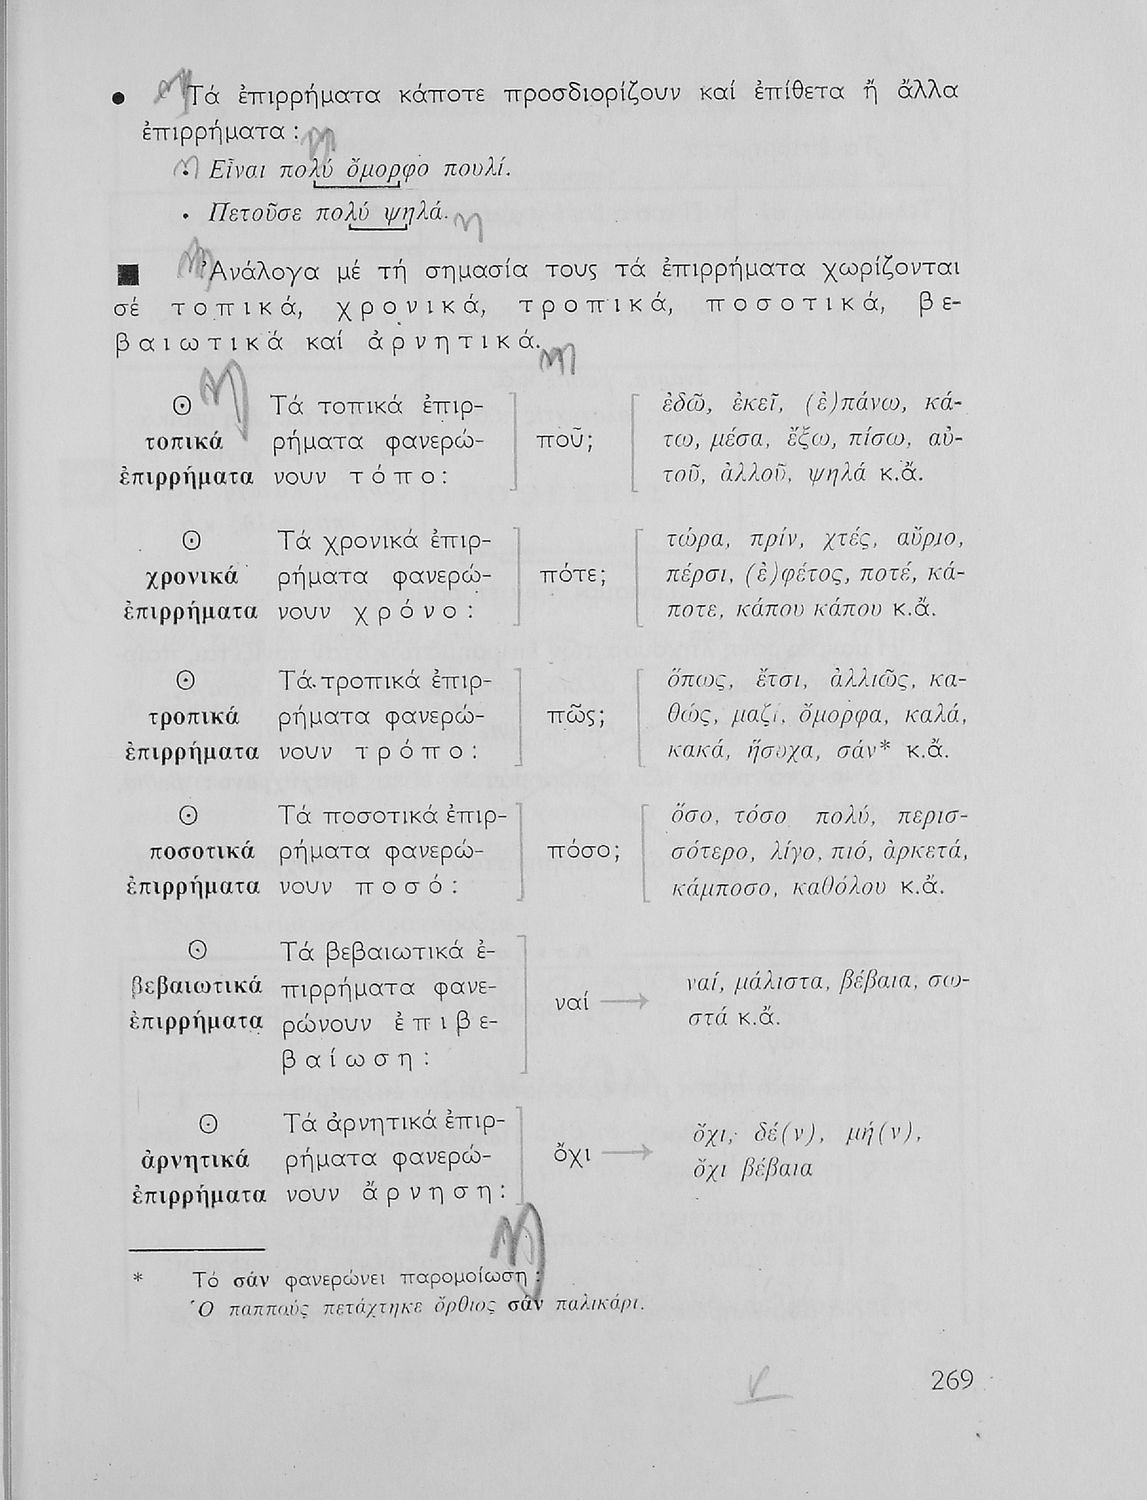 • Τά ἐπιρρήματα κάποτε προσδιορίζουν καί ἐπίθετα ἤ ἄλλα
ἐπιρρήματα :
• Εἶναι πολύ ὄμορφο πουλί.
• Πετοῦσε πολύ ψηλά.
■ Ἀνάλογα μέ τή σημασία τους τά ἐπιρρήματα χωρίζονται
σέ τοπικά, χρονικά, τροπικά, ποσοτικά, βε-
βαιωτικά καί ἀρνητικά.
⊙
τοπικά
ἐπιρρήματα
Τά τοπικά ἐπιρ-
ρήματα φανερώ-
νουν τόπο:
ποῦ;
ἐδῶ, ἐκεῖ, (ἐ)πάνω, κά-
τω, μέσα, ἔξω, πίσω, αὐ-
τοῦ, ἀλλοῦ, ψηλά κ.ἄ.
⊙
χρονικά
ἐπιρρήματα
Τά χρονικά ἐπιρ-
ρήματα φανερώ-
νουν χρόνο:
πότε;
τώρα, πρίν, χτές, αὔριο,
πέρσι, (ἐ)φέτος, ποτέ, κά-
ποτε, κάπου κάπου κ.ἄ.
⊙
τροπικά
ἐπιρρήματα
Τά τροπικά ἐπιρ-
ρήματα φανερώ-
νουν τρόπο:
πῶς;
ὅπως, ἔτσι, ἀλλιῶς, κα-
θώς, μαζί, ὄμορφα, καλά,
κακά, ἥσυχα, σάν* κ.ἄ.
⊙
ποσοτικά
ἐπιρρήματα
Τά ποσοτικά ἐπιρ-
ρήματα φανερώ-
νουν ποσό:
πόσο;
ὅσο, τόσο πολύ, περισ-
σότερο, λίγο, πιό, ἀρκετά,
κάμποσο, καθόλου κ.ἄ.
⊙
βεβαιωτικά
ἐπιρρήματα
Τά βεβαιωτικά ἐ-
πιρρήματα φανε-
ρώνουν ἐπιβε-
βαίωση:
ναί →
ναί, μάλιστα, βέβαια, σω-
στά κ.ἄ.
⊙
ἀρνητικά
ἐπιρρήματα
Τά ἀρνητικά ἐπιρ-
ρήματα φανερώ-
νουν ἄρνηση:
ὄχι →
ὄχι, δέ(ν), μή(ν),
ὄχι βέβαια
* Τό σάν φανερώνει παρομοίωση :
Ὁ παππούς πετάχτηκε ὄρθιος σάν παλικάρι.
269